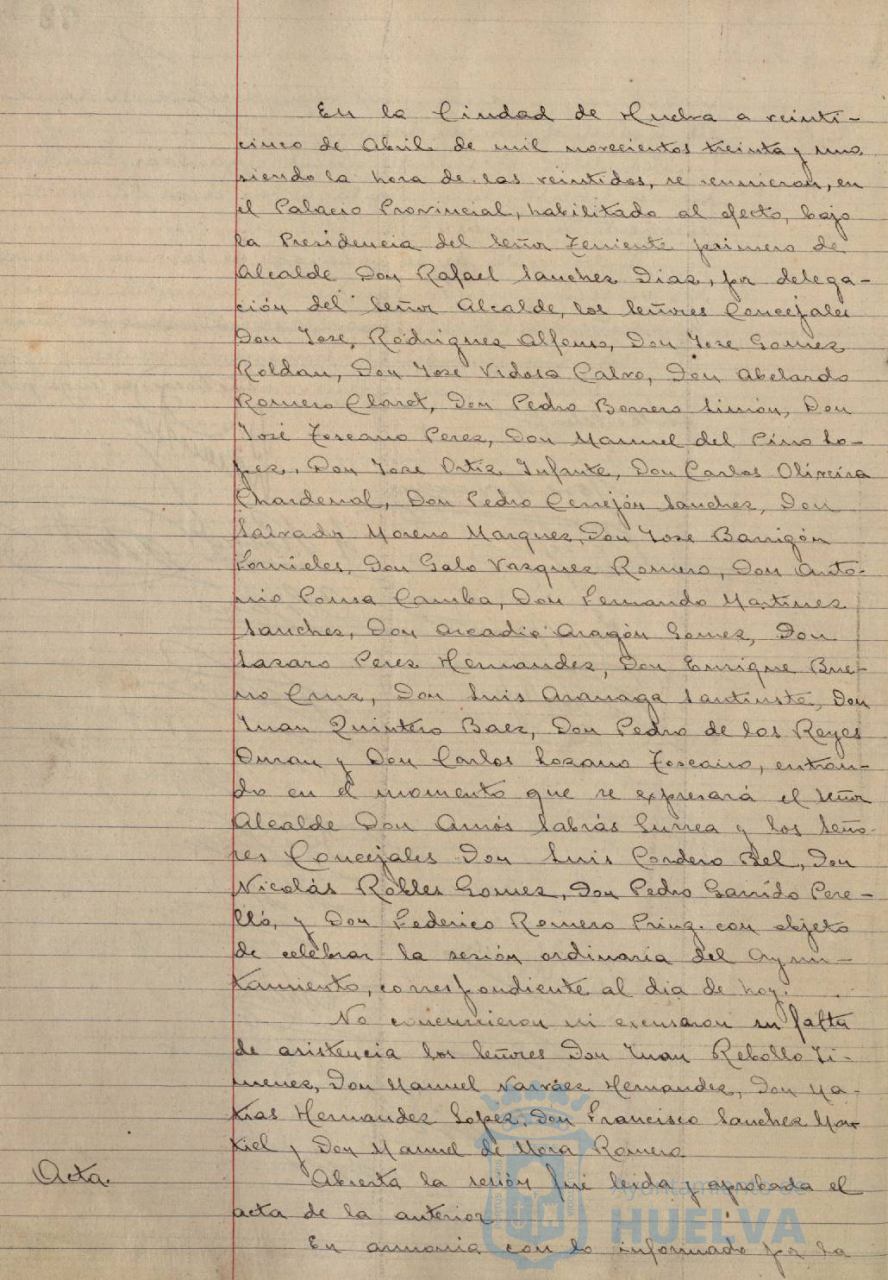 En la Ciudad de Huelva a veinti-
cinco de Abril de mil novecientos treinta y uno
siendo la hora de las veintidos, se reunieron, en
el Palacio Provincial, habilitado al efecto, bajo
la Presidencia del Señor Teniente primero de
Alcalde Don Rafael Sanchez Diaz, por delega-
ción del Señor Alcalde, los Señores Concejales
Don Jose, Rodriguez Alfonso, Don Jose Gomez
Roldan, Don José Vidosa Calvo, Don Abelardo
Romero Claret, Don Pedro Borrero Limón, Don
José Toscano Perez, Don Manuel del Pino Lo-
pez, Don Jose Ortiz Infante, Don Carlos Oliveira
Chardenal, Don Pedro Cerrejón Sanchez, Don
Salvador Moreno Marquez, Don Jose Barrigón
Fornieles, Don Galo Vazquez Romero, Don Anto-
nio Ponsa Camba, Don Fernando Martinez
Sanchez, Don Arcadio Aragón Gomez, Don
Lazaro Perez Hernandez, Don Enrique Bue-
no Cruz, Don Luis Aranaga Santiusté, Don
Juan Quintero Baez, Don Pedro de los Reyes
Duran y Don Carlos Lozano Toscano, entran-
do en el momento que se expresará el Señor
Alcalde Don Amós Sabrás Gurrea y los Seño-
res Concejales Don Luis Cordero Bel, Don
Nicolás Robles Gomez, Don Pedro Garrido Pere-
lló, y Don Federico Romero con objeto
de celebrar la sesión ordinaria del Ayun-
tamiento, correspondiente al dia de hoy.
No concurrieron ni excusaron su falta
de asistencia los Señores Don Juan Rebollo Ji-
menez, Don Manuel Narváez Hernandez, Don Ma-
tias Hernandez Lopez, Don Francisco Sanchez Mar-
tiel y Don Manuel de Mora Romero.
Acta.
Abierta la sesión fué leida y aprobada el
acta de la anterior
En armonia con lo informado por la
Ayuntamiento de
HUELVA